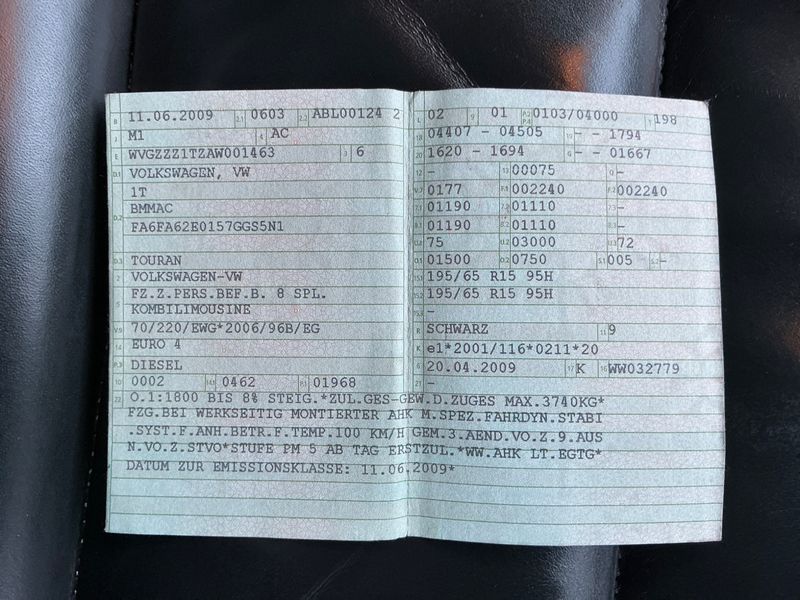 B 11.06.2009 2.1 0603 2.2 ABL00124 2
J M1 4 AC
E WVGZZZ1TZAW001463 3 6
D.1 VOLKSWAGEN, VW
1T
D.2 BMMAC
FA6FA62E0157GGS5N1
D.3 TOURAN
2 VOLKSWAGEN-VW
5 FZ.Z.PERS.BEF.B. 8 SPL.
KOMBILIMOUSINE
V.9 70/220/EWG*2006/96B/EG
14 EURO 4
P.3 DIESEL
10 0002 14.1 0462 P.1 01968
L 02 9 01 P.2 P.4 0103/04000 T 198
18 04407 - 04505 19 - - 1794
20 1620 - 1694 G - - 01667
12 - 13 00075 Q -
V.7 0177 F.1 002240 F.2 002240
7.1 01190 7.2 01110 7.3 -
8.1 01190 8.2 01110 8.3 -
U.1 75 U.2 03000 U.3 72
O.1 01500 O.2 0750 S.1 005 S.2 -
15.1 195/65 R15 95H
15.2 195/65 R15 95H
-
R SCHWARZ 11 9
K e1*2001/116*0211*20
6 20.04.2009 17 K 16 WW032779
21 -
22 O.1:1800 BIS 8% STEIG.*ZUL.GES-GEW.D.ZUGES MAX.3740KG*
FZG.BEI WERKSEITIG MONTIERTER AHK M.SPEZ.FAHRDYN.STABI
.SYST.F.ANH.BETR.F.TEMP.100 KM/H GEM.3.AEND.VO.Z.9.AUS
N.VO.Z.STVO*STUFE PM 5 AB TAG ERSTZUL.*WW.AHK LT.EGTG*
DATUM ZUR EMISSIONSKLASSE: 11.06.2009*